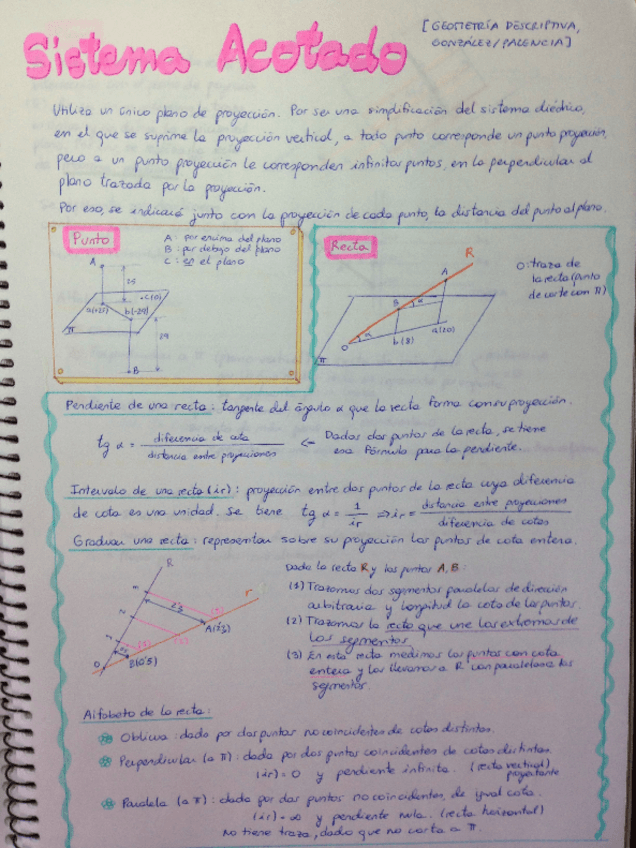 Sistema Acotado
[GEOMETRÍA DESCRIPTIVA,
GONZÁLEZ/PALENCIA]
Utiliza un único plano de proyección. Por ser una simplificación del sistema diédrico,
en el que se suprime la proyección vertical, a todo punto corresponde un punto proyección,
pero a un punto proyección le corresponden infinitos puntos, en la perpendicular al
plano trazada por la proyección.
Por eso, se indicará junto con la proyección de cada punto, la distancia del punto al plano.
Punto
A: por encima del plano
B: por debajo del plano
C: en el plano
A
25
c(0)
a(+25)
b(-29)
π
29
B
Recta
R
O: traza de
la recta (punto
de corte con π)
A
B
α
α
O
b(8)
a(20)
π
Pendiente de una recta: tangente del ángulo α que la recta forma con su proyección.
tg α = diferencia de cota / distancia entre proyecciones ← Dados dos puntos de la recta, se tiene
esa fórmula para la pendiente.
Intervalo de una recta (ir): proyección entre dos puntos de la recta cuya diferencia
de cota es una unidad. Se tiene tg α = 1/ir ⇒ ir = distancia entre proyecciones / diferencia de cotas
Graduar una recta: representar sobre su proyección los puntos de cota entera.
R
r
3
2
1
O
2'3
(3)
(2)
(1)
A(2'3)
B(0'5)
Dada la recta R y los puntos A, B:
(1) Trazamos dos segmentos paralelos de dirección
arbitraria y longitud la cota de los puntos.
(2) Trazamos la recta que une los extremos de
los segmentos.
(3) En esta recta medimos los puntos con cota
entera y los llevamos a R con paralelas a los
segmentos.
Alfabeto de la recta:
Oblicua: dada por dos puntos no coincidentes de cotas distintas.
Perpendicular (a π): dada por dos puntos coincidentes de cotas distintas.
(ir) = 0 y pendiente infinita. (recta vertical)
proyectante
Paralela (a π): dada por dos puntos no coincidentes, de igual cota.
(ir) = ∞ y pendiente nula. (recta horizontal)
No tiene traza, dado que no corta a π.